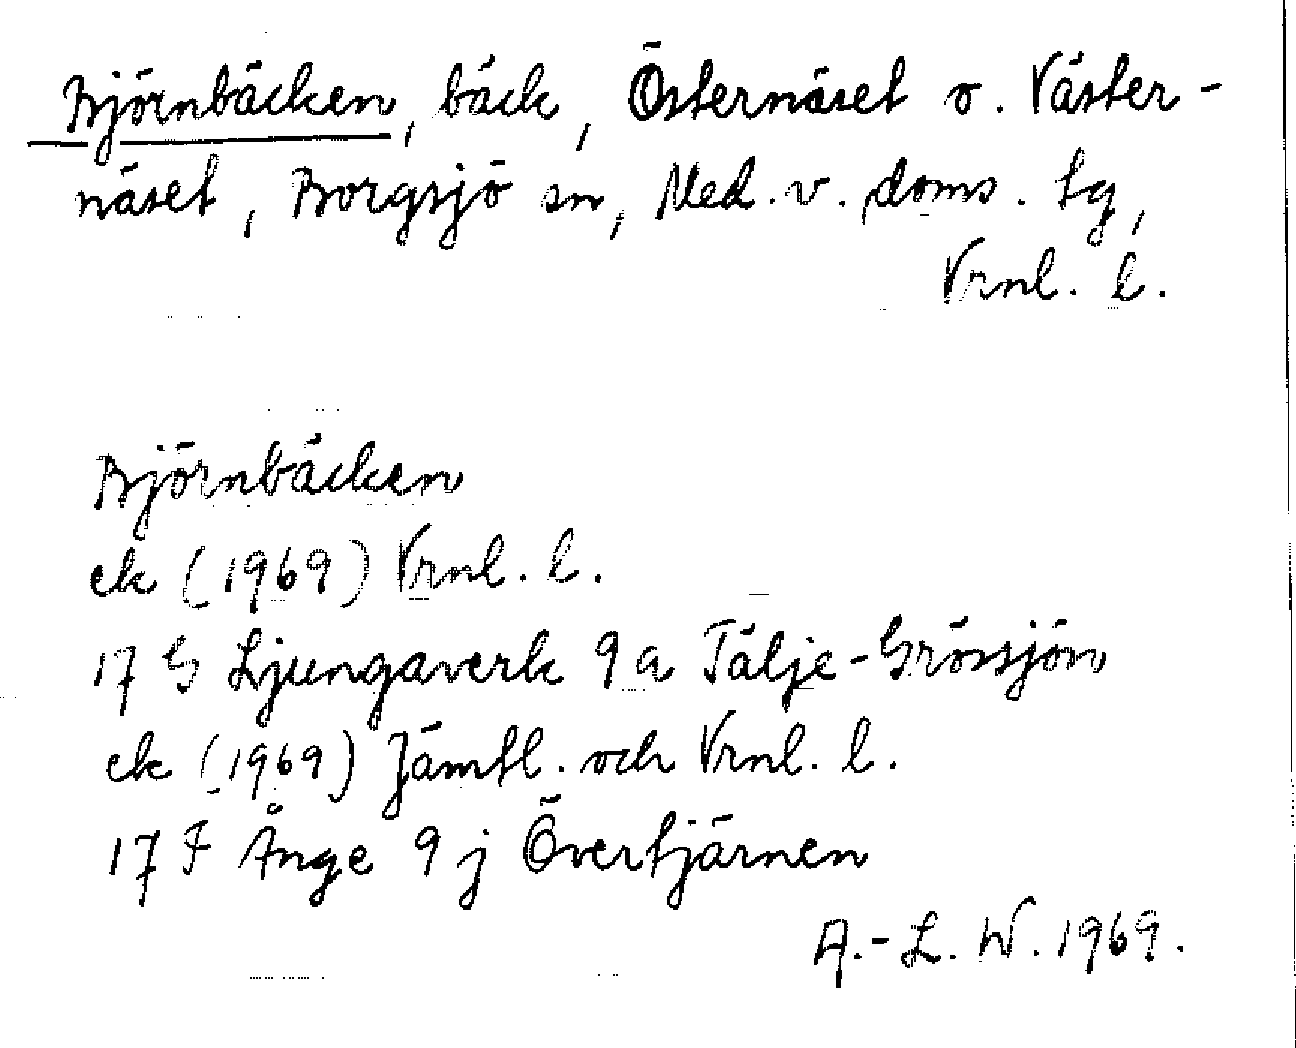 Björnbäcken, bäck, Östernäset o. Väster-
näset, Borgsjö sn, Med. v. doms. tg,
Vrnl. l.
Björnbäcken
ek (1969) Vrnl. l.
17 G Ljungaverk 9 a Tälje-Grössjön
ek (1969) Jämtl. och Vrnl. l.
17 F Ånge 9 j Övertjärnen
A.-L. W. 1969.